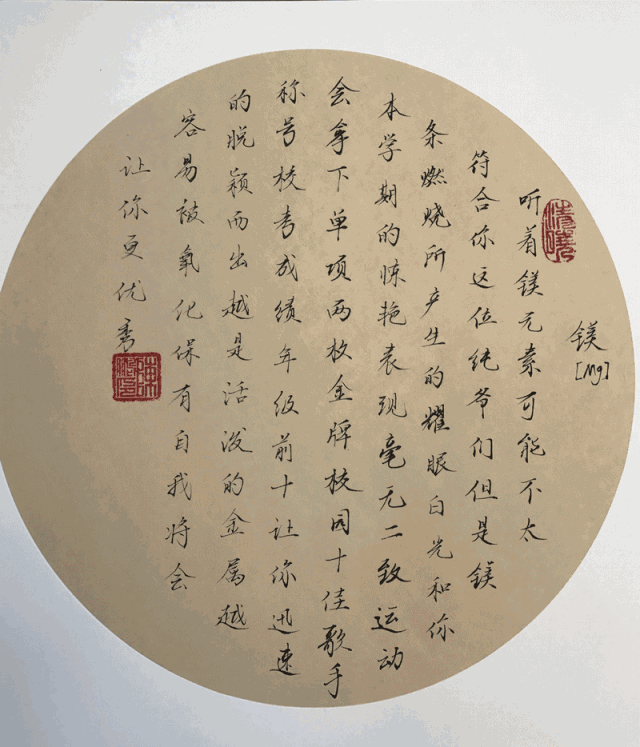 镁
[Mg]
听着镁元素可能不太
符合你这位纯爷们但是镁
条燃烧所产生的耀眼白光和你
本学期的惊艳表现毫无二致运动
会拿下单项两枚金牌校园十佳歌手
称号校考成绩年级前十让你迅速
的脱颖而出越是活泼的金属越
容易被氧化保有自我将会
让你更优秀